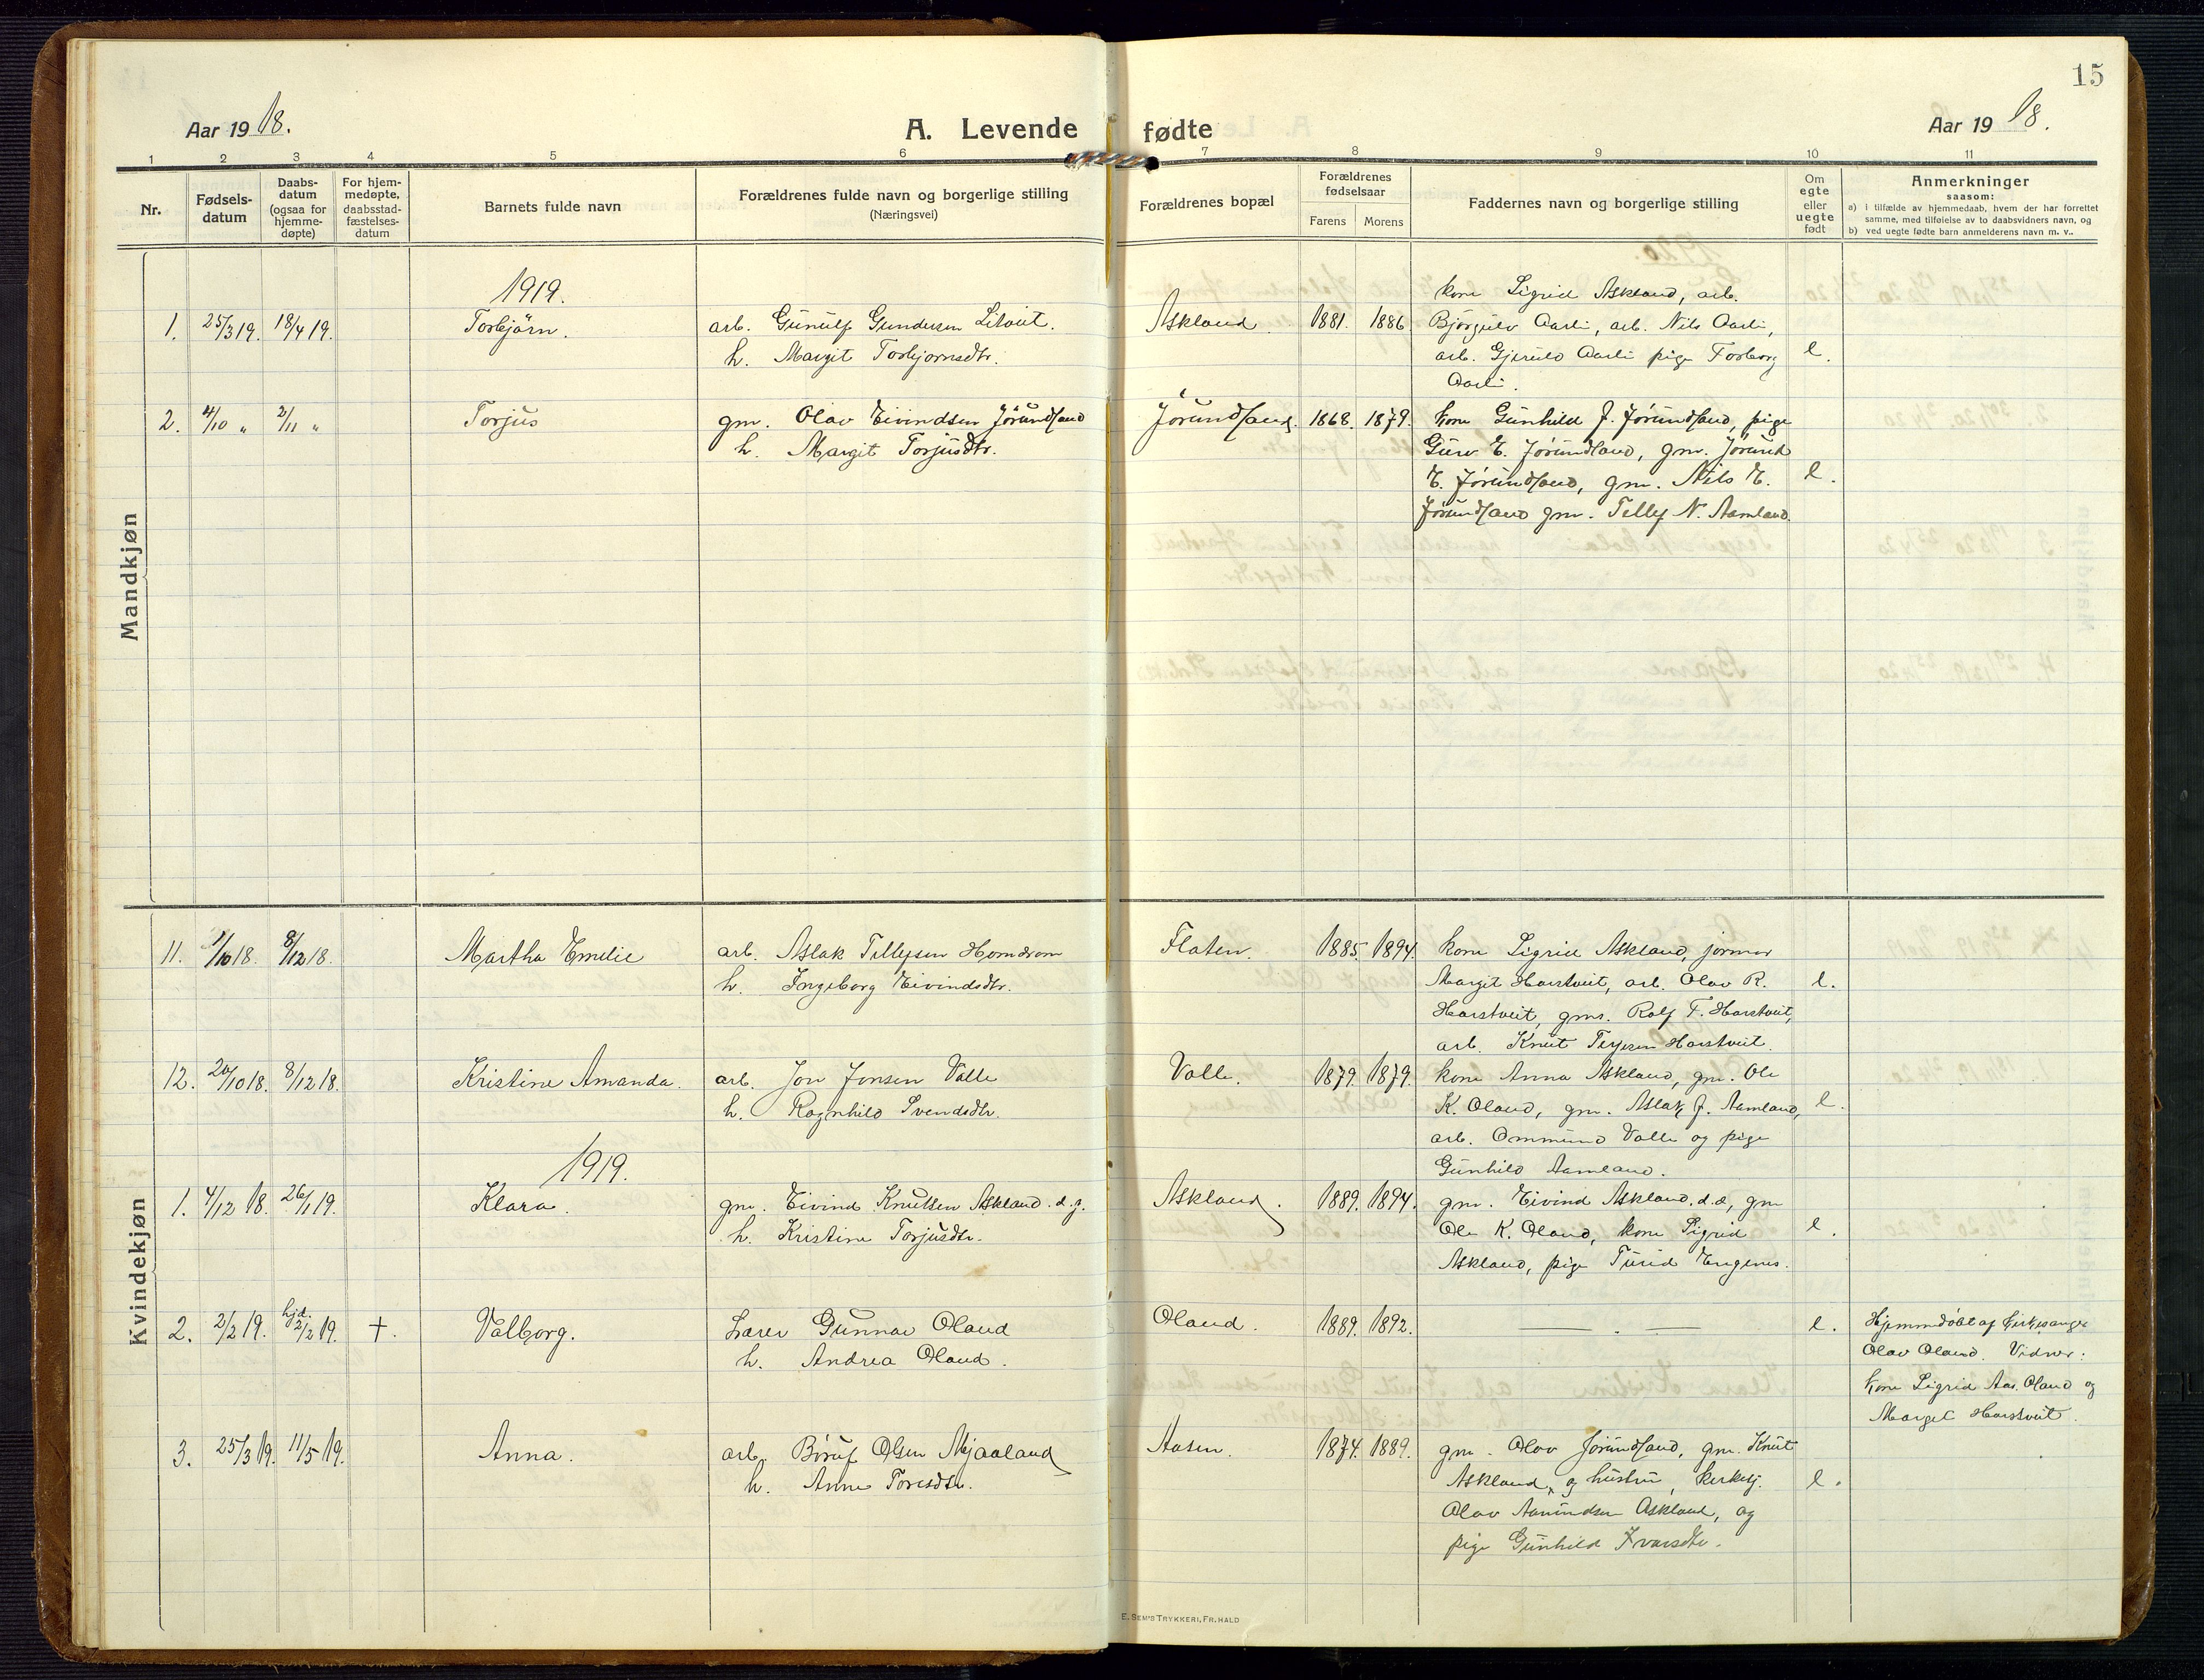 15
Aar 1918.
A. Levende fødte
Aar 1918.
1 2 3 4 5 6 7 8 9 10 11
Nr.
Fødsels-
datum
Daabs-
datum
(ogsaa for
hjemme-
døpte)
For hjem-
medøpte,
daabsstad-
fæstelses-
datum
Barnets fulde navn
Forældrenes fulde navn og borgerlige stilling
(Næringsvei)
Forældrenes bopæl
Forældrenes
fødselsaar
Farens Morens
Faddernes navn og borgerlige stilling
Om
egte
eller
uegte
født
Anmerkninger
saasom:
a) i tilfælde av hjemmedaab, hvem der har forrettet
samme, med tilføielse av to daabsvidners navn, og
b) ved uegte fødte barn anmelderens navn m. v..
Mandkjøn
1919.
1. 25/3 19. 18/4 19. Torbjörn. arb. Gunulf Gundersen
h. Margit Torbjornsdtr.
Askland. 1881. 1886
kone Sigrid Askland, arb.
Bjørgulv Aarli, arb. Nils Aarli,
arb. Gjeruld Aarli pige Torborg
Aarli.
e.
2. 4/10 „ 2/11 „ Torjus gm. Olav Eivindsen Jörundland
h. Margit Torjusdtr.
Jörundland. 1868. 1879.
kone Gunhild J. Jörundland, pige
Guro E. Jörundland, gm. Jörund
E. Jörundland, gm. Nils E.
Jörundland gm. Tellef N. Aamland.
e.
Kvindekjøn
11. 1/10 18. 8/12 18. Martha Emelie arb. Aslak Tellefsen Homdrom
h. Ingeborg Eivindsdtr.
Flaten. 1885. 1894.
kone Sigrid Askland, jormor
Margit Harstveit, arb. Olav R.
Harstveit, gms. Rolf T. Harstveit,
arb. Knut Terjesen Harstveit.
e.
12. 20/10 18. 8/12 18. Kristine Amanda. arb. Jon Jonsen Valle
h. Ragnhild Svendsdtr.
Valle. 1879. 1879.
kone Anna Askland, gm. Ole
K. Oland, gm. Aslak J. Aamland,
arb. Ommund Valle og pige
Gunhild Aamland.
e.
1919.
1. 4/12 18. 26/1 19. Klara. gm. Eivind Knutsen Askland. d.y.
h. Kristine Torjusdtr.
Askland. 1889. 1894.
gm. Eivind Askland. d.æ, gm
Ole K. Oland, kone Sigrid
Askland, pige Turid Engenes.
e.
2. 2/2 19. hjd. 2/2 19. †. Valborg. Lærer Gunnar Oland
h. Andrea Oland.
Oland. 1889. 1892.
e.
Hjemmedöbt af kirkesanger
Olav Oland. Vidner:
kone Sigrid Aas. Oland og
Margit Harstveit.
3. 25/3 19. 11/5 19. Anna. arb. Böruf Olsen Mjaaland
h. Anne Toresdtr.
Aasen. 1874. 1889.
gm. Olav Jörundland, gm. Knut
Askland, og hustru, kirkesj.
Olav Aanundsen Askland, og
pige Gunhild Ivarsdtr.
e.
E. SEM'S TRYKKERI, FR.HALD